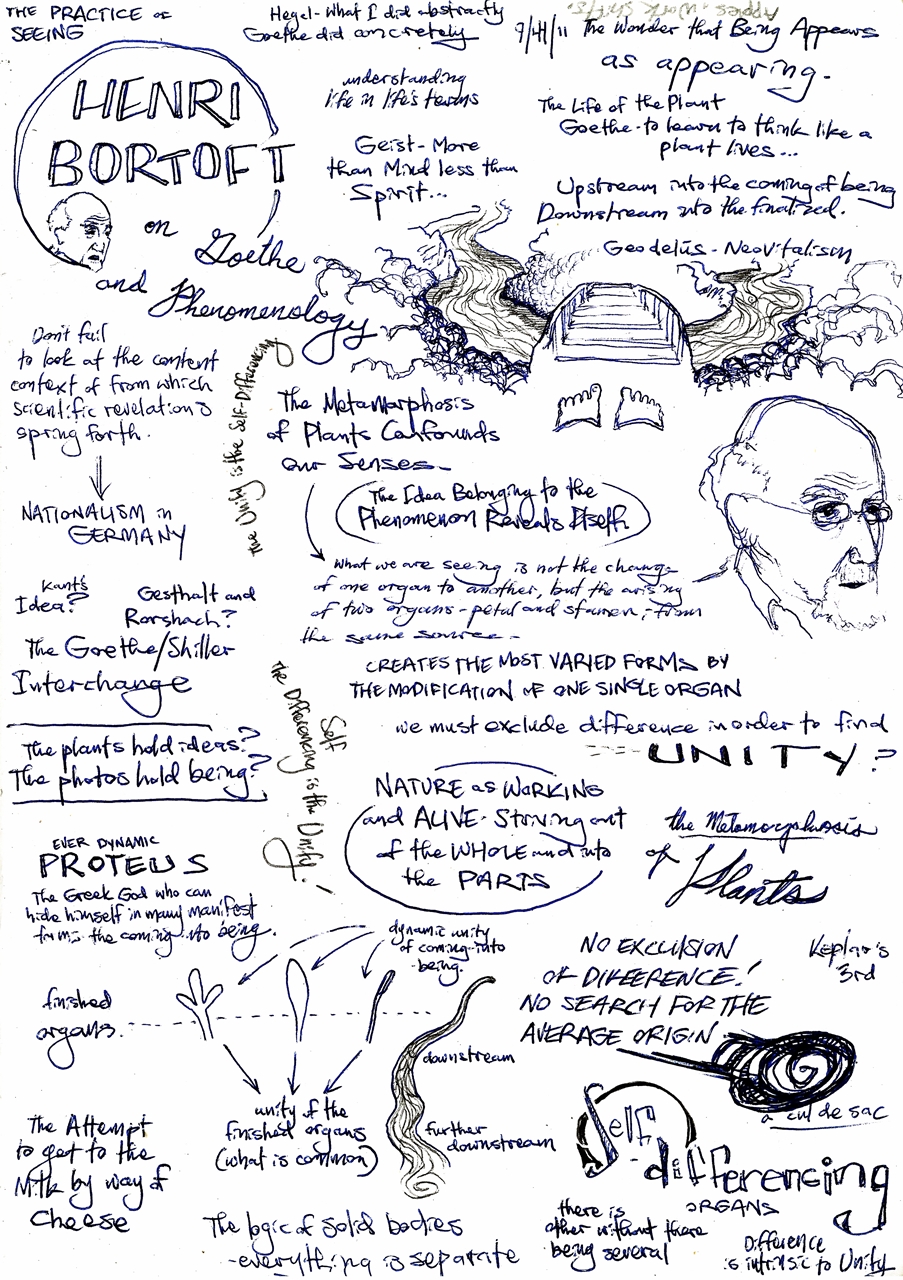 THE PRACTICE OF
SEEING
Hegel - What I did abstractly
Goethe did concretely
9/4/11 The Wonder that Being Appears
as appearing.
HENRI
BORTOFT
on Goethe
and Phenomenology
understanding
life in life's terms
Geist - More
than Mind less than
Spirit...
The Life of the Plant
Goethe - to learn to think like a
plant lives...
Upstream into the coming of being
Downstream into the finalized.
Geodelus - Neovitalism
Don't fail
to look at the content
context of from which
scientific revelations
spring forth.
NATIONALISM in
GERMANY
Kant's
Idea?
Gesthalt and
Rorshach?
The Goethe/Shiller
Interchange
The plants hold ideas?
The photos hold being?
the Unity is the Self-Differencing
The Metamorphosis
of Plants Confounds
our Senses-
The Idea Belonging to the
Phenomenon Reveals Itself.
What we are seeing is not the change
of one organ to another, but the arising
of two organs - petal and stamen, from
the same source -
CREATES THE MOST VARIED FORMS BY
THE MODIFICATION OF ONE SINGLE ORGAN
we must exclude difference in order to find
UNITY?
the Self
Differencing is the Unity!
NATURE as WORKING
and ALIVE - Striving out
of the WHOLE and into
the PARTS
the Metamorphosis
of Plants
EVER DYNAMIC
PROTEUS
The Greek God who can
hide himself in many manifest
forms the coming into being.
dynamic unity
of coming-into
-being.
finished
organs.
downstream
further
downstream
unity of the
finished organs
(what is common)
NO EXCLUSION
OF DIFFERENCE!
NO SEARCH FOR THE
AVERAGE ORIGIN
Keplar's
3rd
a cul de sac
Self
differencing
ORGANS
The Attempt
to get to the
Milk by way of
Cheese
The logic of solid bodies
- everything is separate
there is
other without there
being several
Difference
is intrinsic to Unity